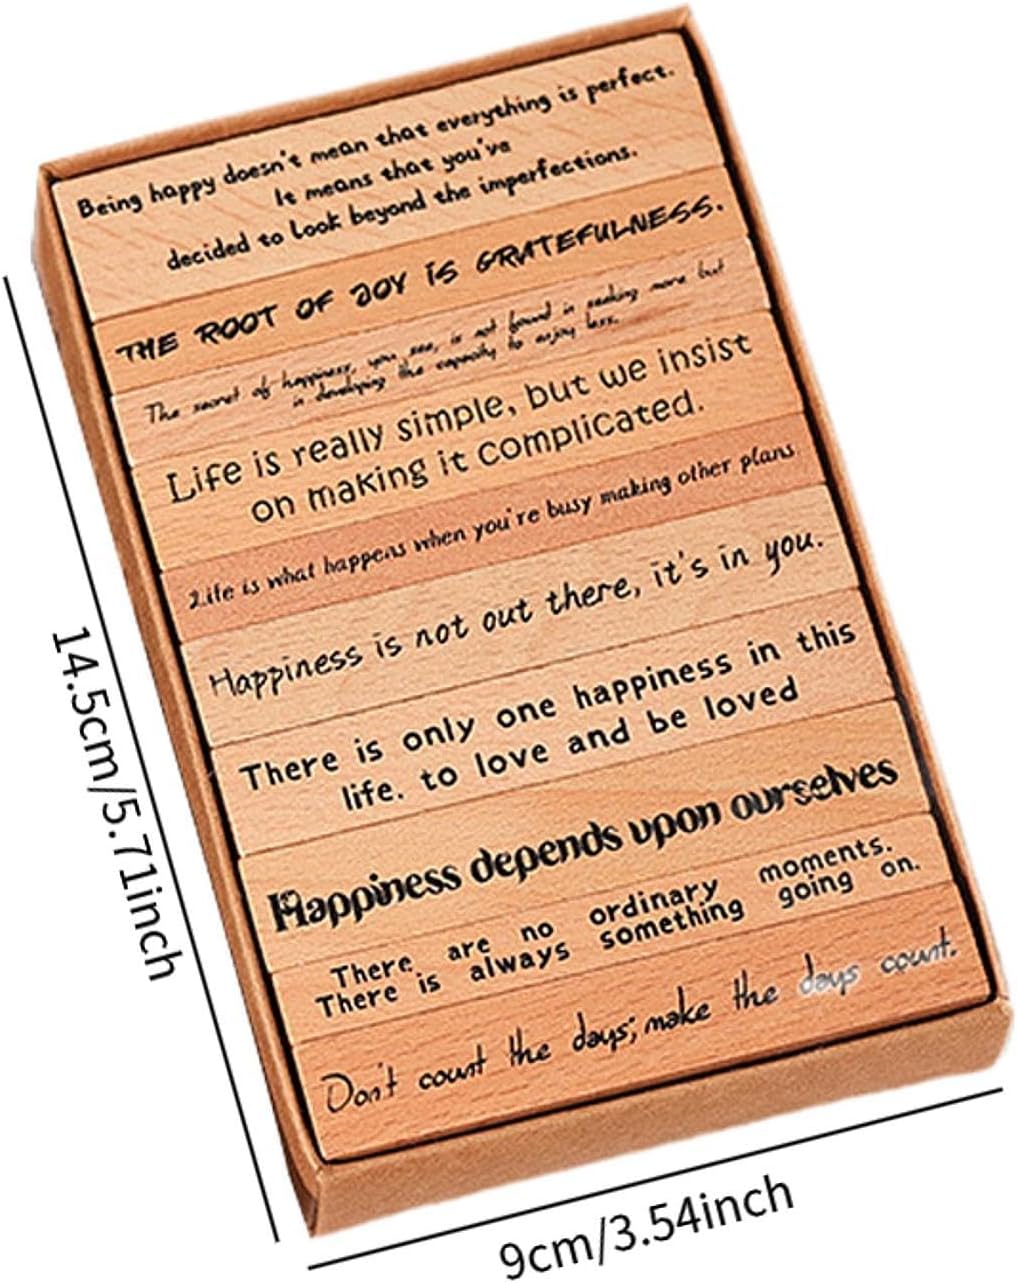 Being happy doesn't mean that everything is perfect.
It means that you've
decided to look beyond the imperfections.
THE ROOT OF JOY IS GRATEFULNESS.
The secret of happiness, you see, is not found in seeking more but
in developing the capacity to enjoy less.
Life is really simple, but we insist
on making it complicated.
Life is what happens when you're busy making other plans
Happiness is not out there, it's in you.
There is only one happiness in this
life. to love and be loved
Happiness depends upon ourselves
There are no ordinary moments.
There is always something going on.
Don't count the days; make the days count.
14.5cm/5.71inch
9cm/3.54inch